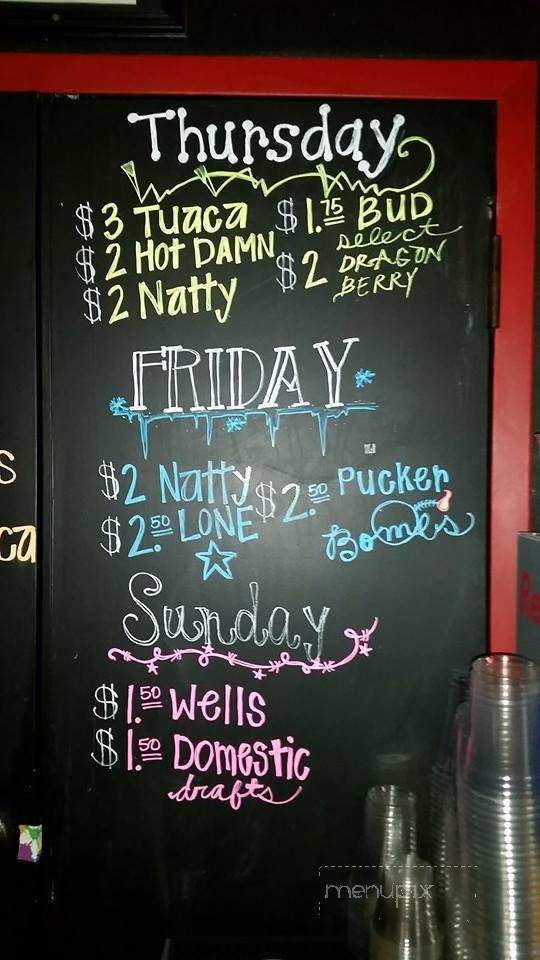 Thursday
$3 Tuaca
$2 HOT DAMN
$2 Natty
$1.75 BUD
select
$2 DRAGON
BERRY
FRIDAY
$2 Natty
$2.50 LONE
$2.50 Pucker
Bombs
Sunday
$1.50 Wells
$1.50 Domestic
drafts
s
ca
Re
menupix